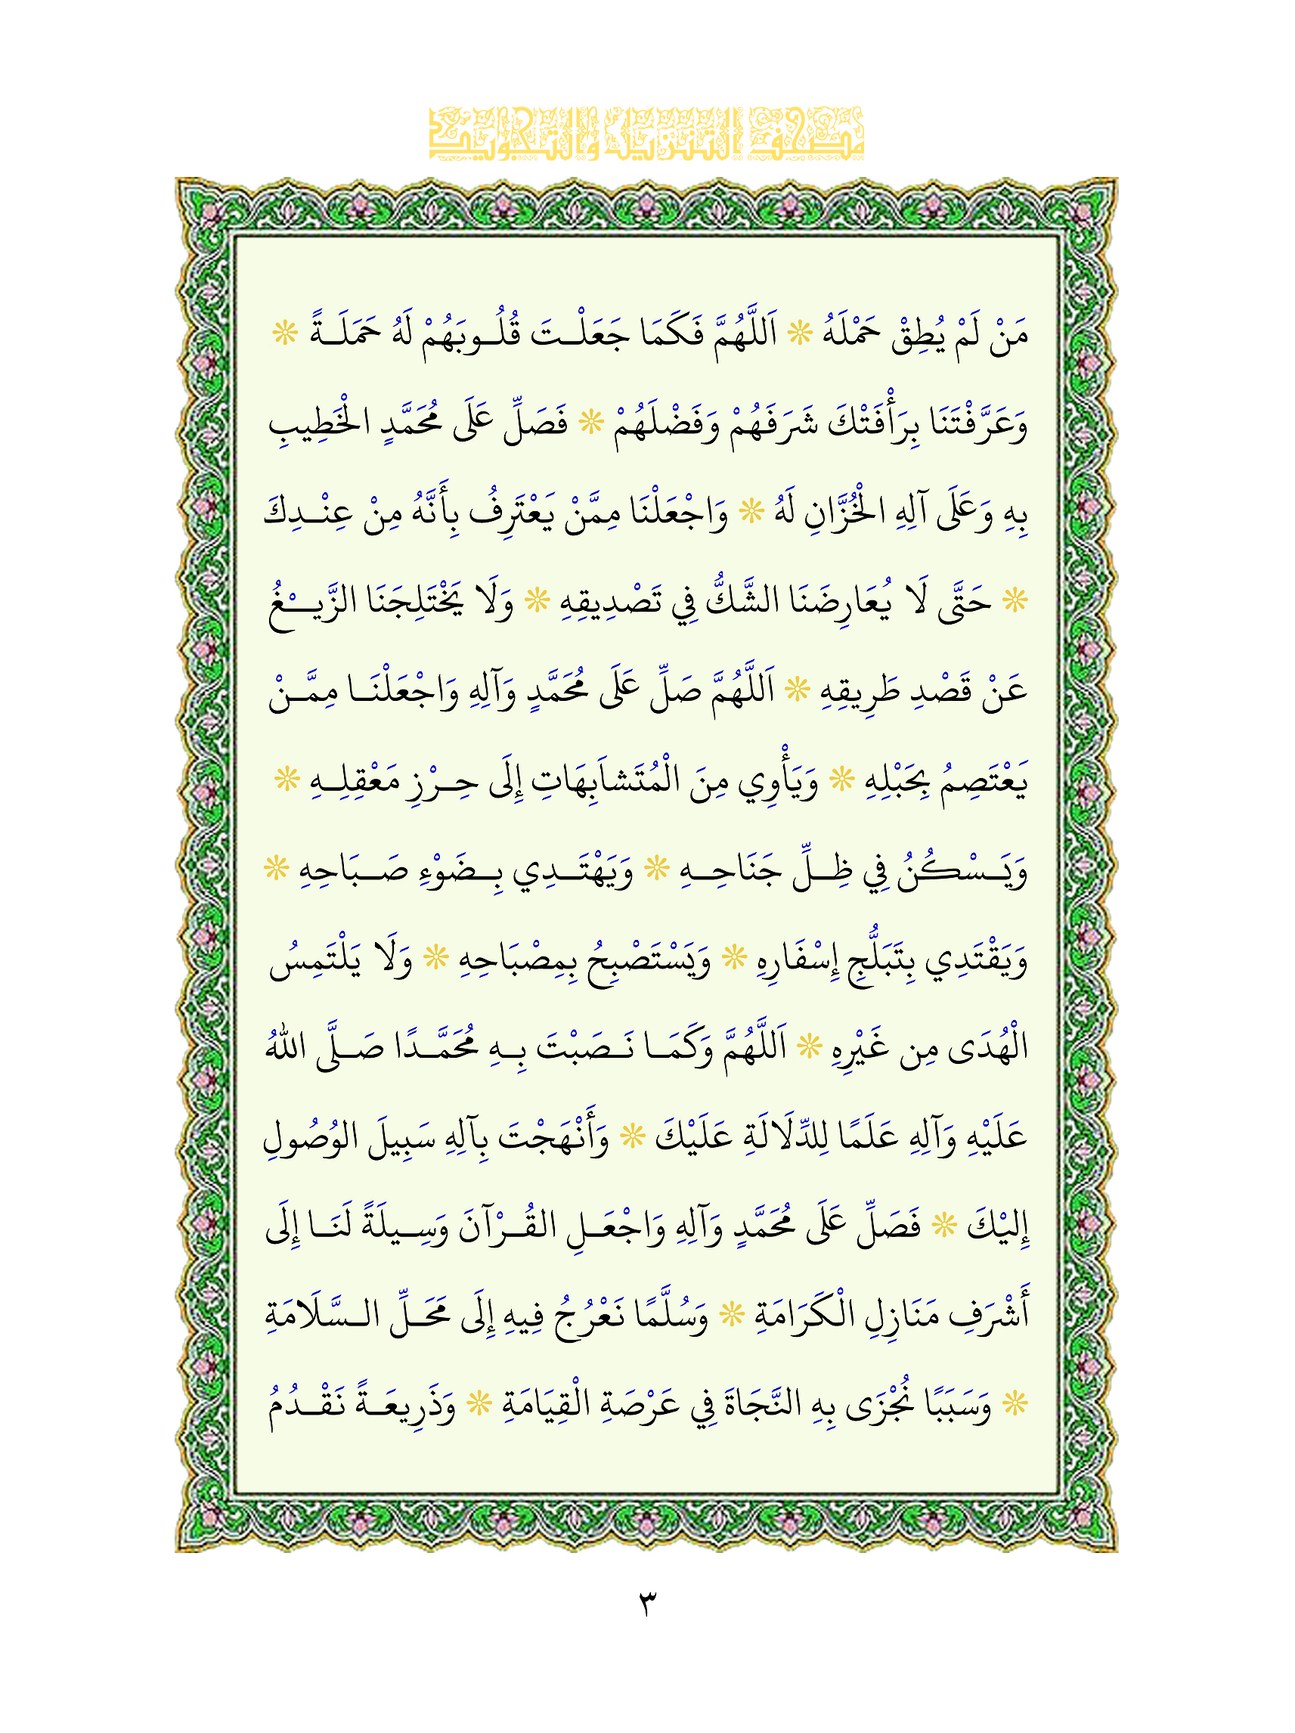 مَنْ لَمْ يُطِقْ حَمْلَهُ ❊ اَللَّهُمَّ فَكَمَا جَعَلْتَ قُلُوبَهُمْ لَهُ حَمَلَةً ❊
وَعَرَّفْتَنَا بِرَأْفَتْكَ شَرَفَهُمْ وَفَضْلَهُمْ ❊ فَصَلِّ عَلَى مُحَمَّدٍ الْخَطِيبِ
بِهِ وَعَلَى آلِهِ الْخُزَّانِ لَهُ ❊ وَاجْعَلْنَا مِمَّنْ يَعْتَرِفُ بِأَنَّهُ مِنْ عِنْدِكَ
❊ حَتَّى لَا يُعَارِضَنَا الشَّكُّ فِي تَصْدِيقِهِ ❊ وَلَا يَخْتَلِجَنَا الزَّيْغُ
عَنْ قَصْدِ طَرِيقِهِ ❊ اَللَّهُمَّ صَلِّ عَلَى مُحَمَّدٍ وَآلِهِ وَاجْعَلْنَا مِمَّنْ
يَعْتَصِمُ بِحَبْلِهِ ❊ وَيَأْوِي مِنَ الْمُتَشاَبِهَاتِ إِلَى حِرْزِ مَعْقِلِهِ ❊
وَيَسْكُنُ فِي ظِلِّ جَنَاحِهِ ❊ وَيَهْتَدِي بِضَوْءِ صَبَاحِهِ ❊
وَيَقْتَدِي بِتَبَلُّجِ إِسْفَارِهِ ❊ وَيَسْتَصْبِحُ بِمِصْبَاحِهِ ❊ وَلَا يَلْتَمِسُ
الْهُدَى مِن غَيْرِهِ ❊ اَللَّهُمَّ وَكَمَا نَصَبْتَ بِهِ مُحَمَّدًا صَلَّى اللهُ
عَلَيْهِ وَآلِهِ عَلَمًا لِلدِّلَالَةِ عَلَيْكَ ❊ وَأَنْهَجْتَ بِآلِهِ سَبِيلَ الوُصُولِ
إِليْكَ ❊ فَصَلِّ عَلَى مُحَمَّدٍ وَآلِهِ وَاجْعَلِ القُرْآنَ وَسِيلَةً لَنَا إِلَى
أَشْرَفِ مَنَازِلِ الْكَرَامَةِ ❊ وَسُلَّمًا نَعْرُجُ فِيهِ إِلَى مَحَلِّ السَّلَامَةِ
❊ وَسَبَبًا نُجْزَى بِهِ النَّجَاةَ فِي عَرْصَةِ الْقِيَامَةِ ❊ وَذَرِيعَةً نَقْدُمُ
٣